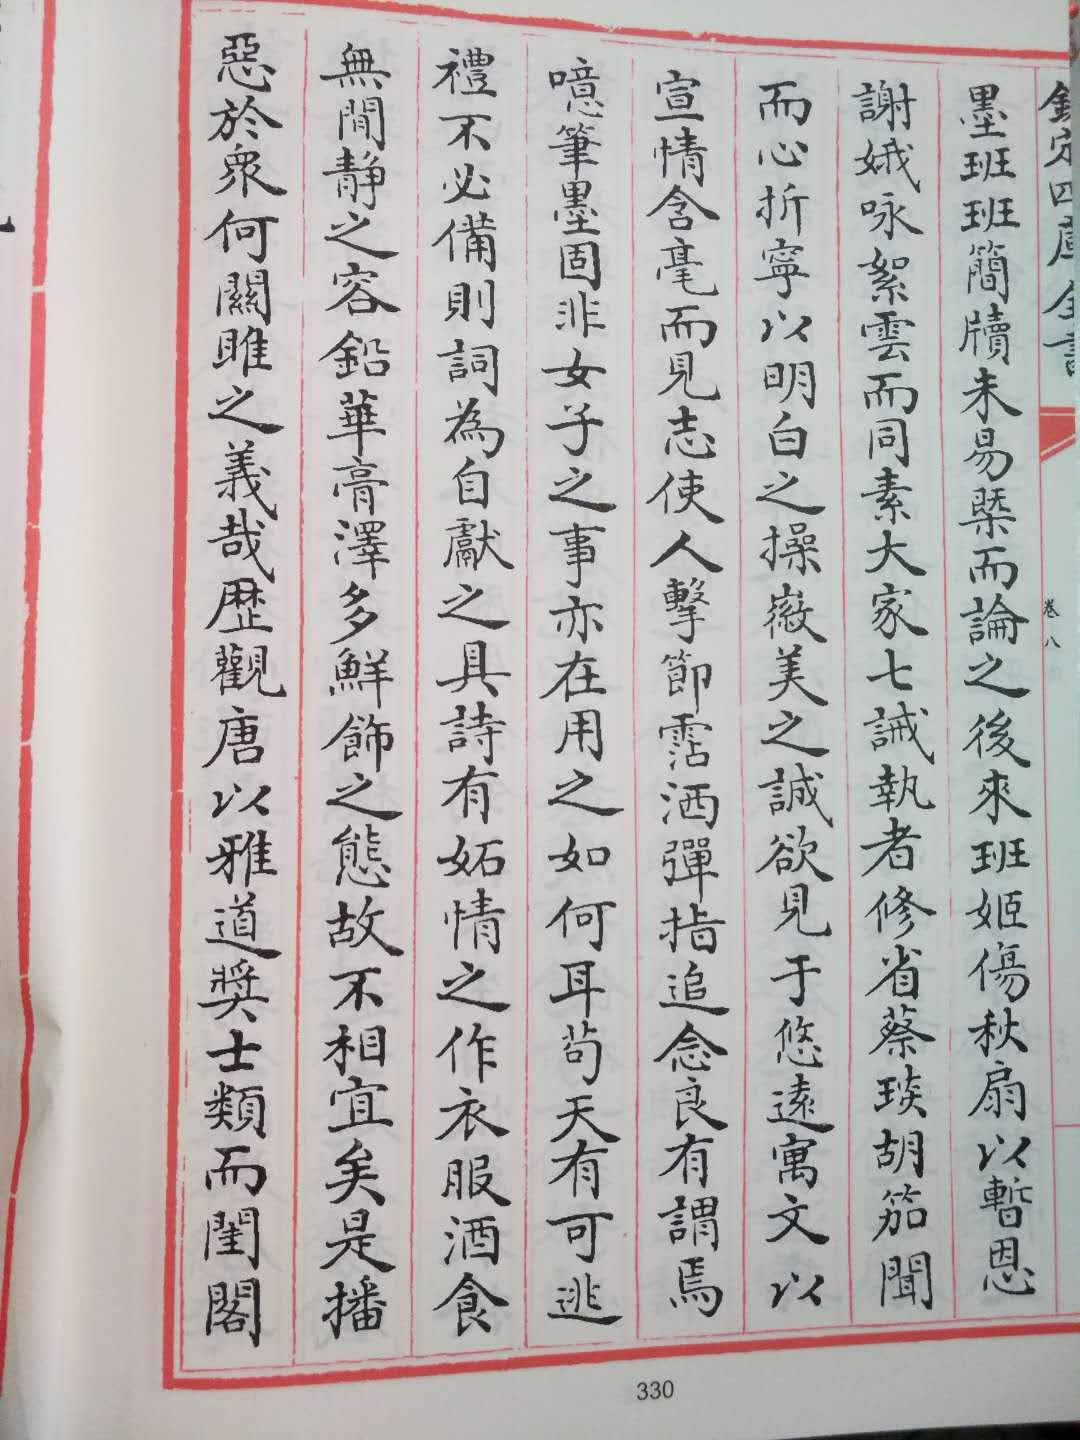 欽定四庫全書
卷八
墨班班簡牘未易槩而論之後來班姬傷秋扇以暫恩
謝娥咏絮雲而同素大家七誡執者修省蔡琰胡笳聞
而心折寧以明白之操徽美之誠欲見于悠遠寓文以
宣情含毫而見志使人擊節霑洒彈指追念良有謂焉
噫筆墨固非女子之事亦在用之如何耳苟天有可逃
禮不必備則詞為自獻之具詩有妬情之作衣服酒食
無閒静之容鉛華膏澤多鮮飾之態故不相宜矣是播
惡於衆何關雎之義哉歷觀唐以雅道奬士類而閨閣
330